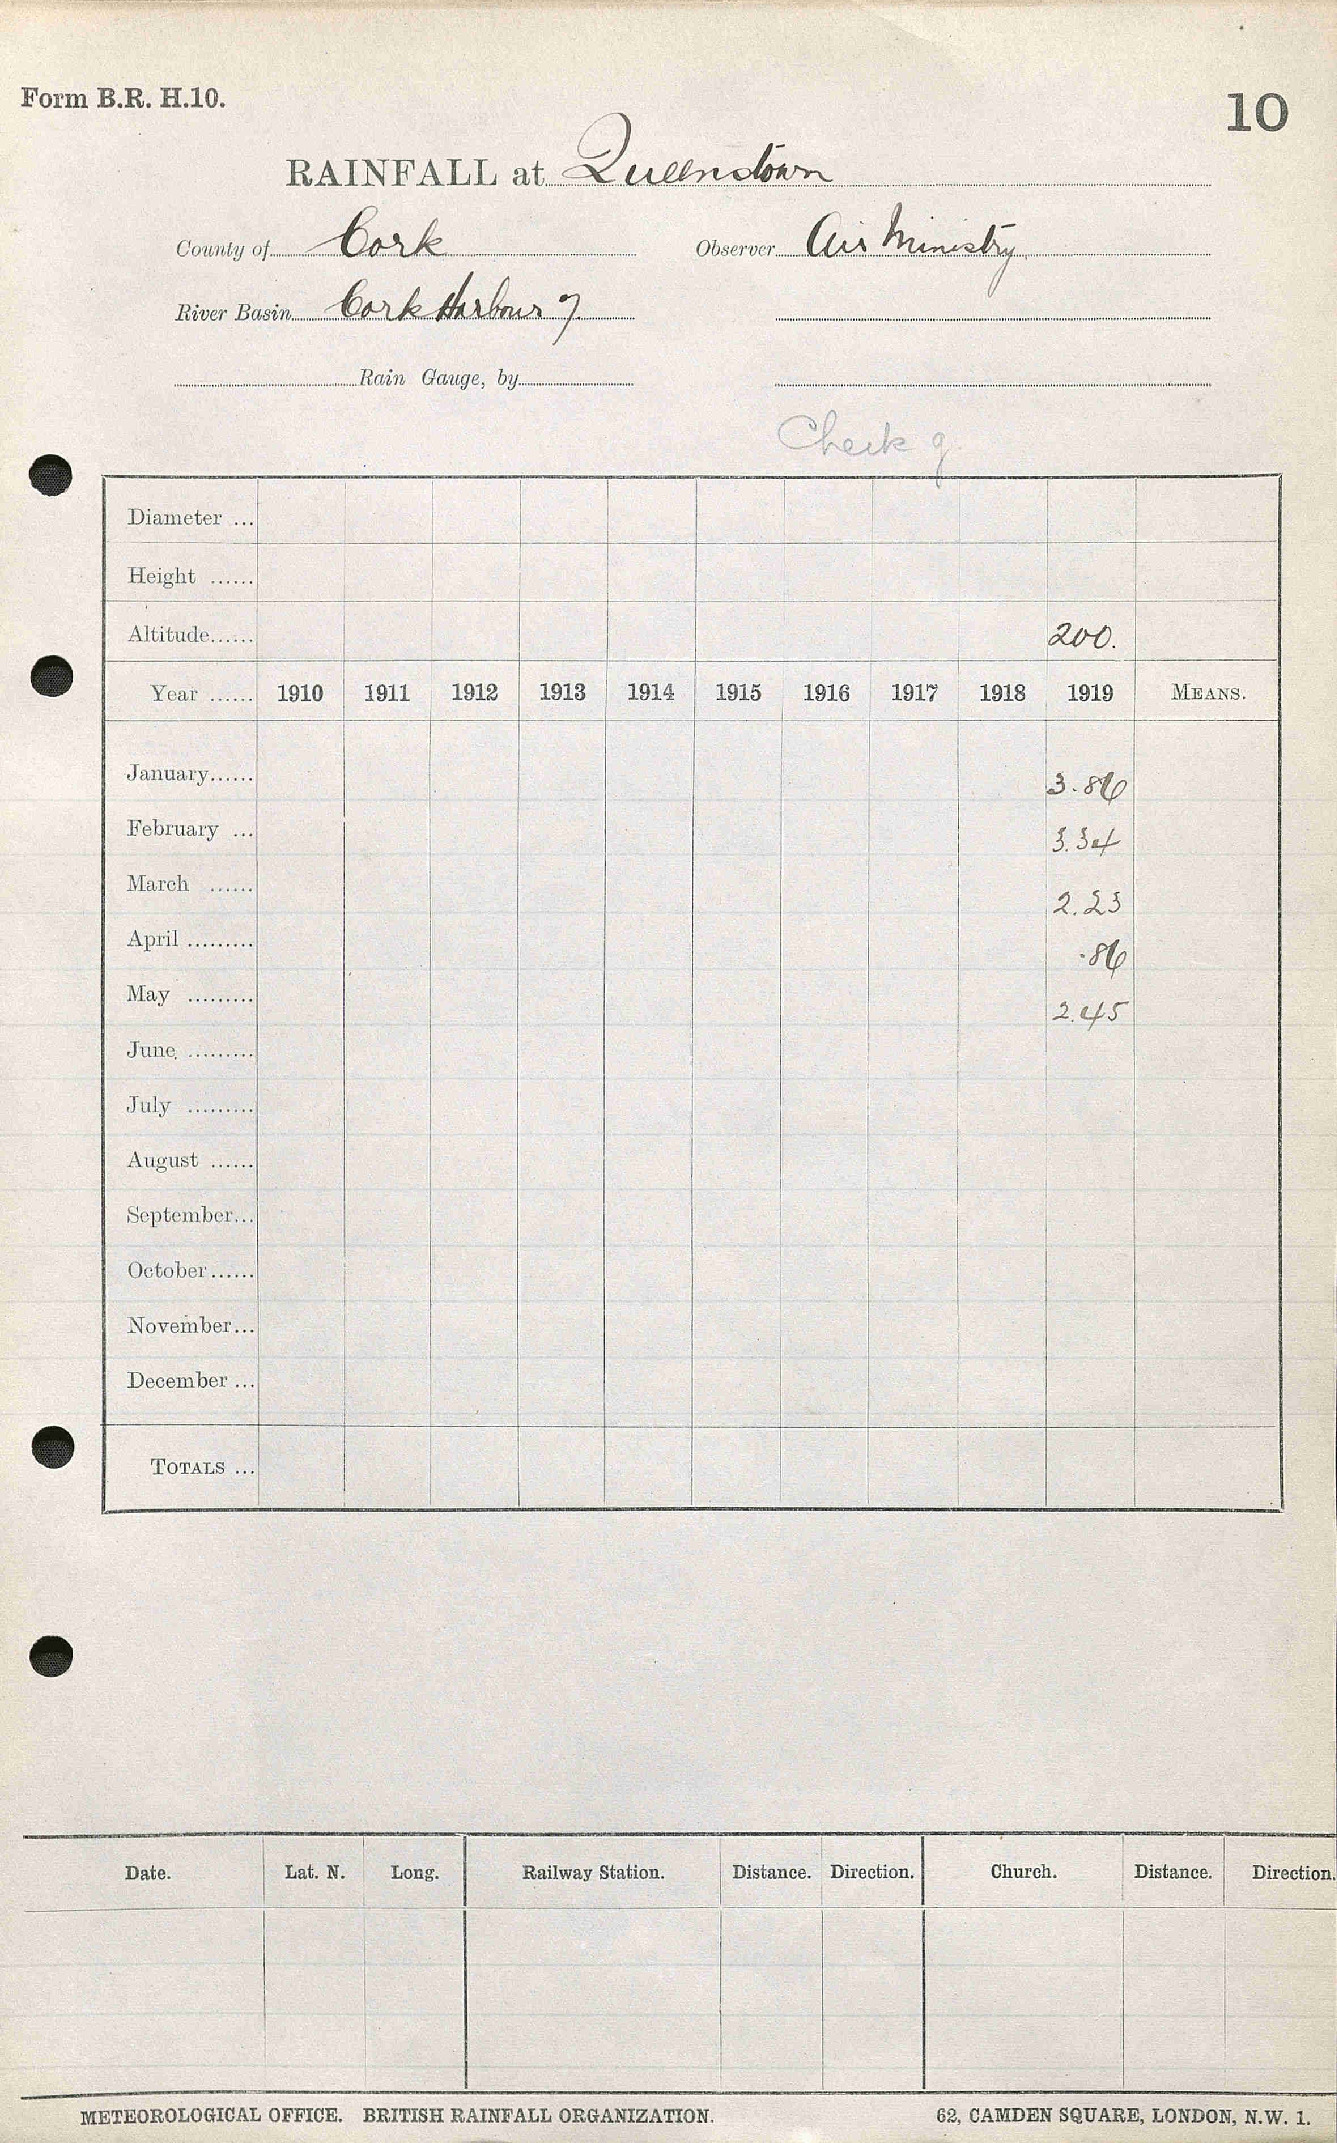 Form B.R. H.10.
10
RAINFALL at Queenstown
County of Cork Observer Air Ministry
River Basin Cork Harbour 7
Rain Gauge, by
Check g
Diameter ...
Height ......
Altitude...... 200.
Year ...... 1910 1911 1912 1913 1914 1915 1916 1917 1918 1919 MEANS.
January...... 3.86
February ... 3.34
March ...... 2.23
April ......... .86
May ......... 2.45
June .........
July .........
August ......
September...
October......
November...
December ...
TOTALS ...
Date. Lat. N. Long. Railway Station. Distance. Direction. Church. Distance. Direction.
METEOROLOGICAL OFFICE. BRITISH RAINFALL ORGANIZATION. 62, CAMDEN SQUARE, LONDON, N.W. 1.